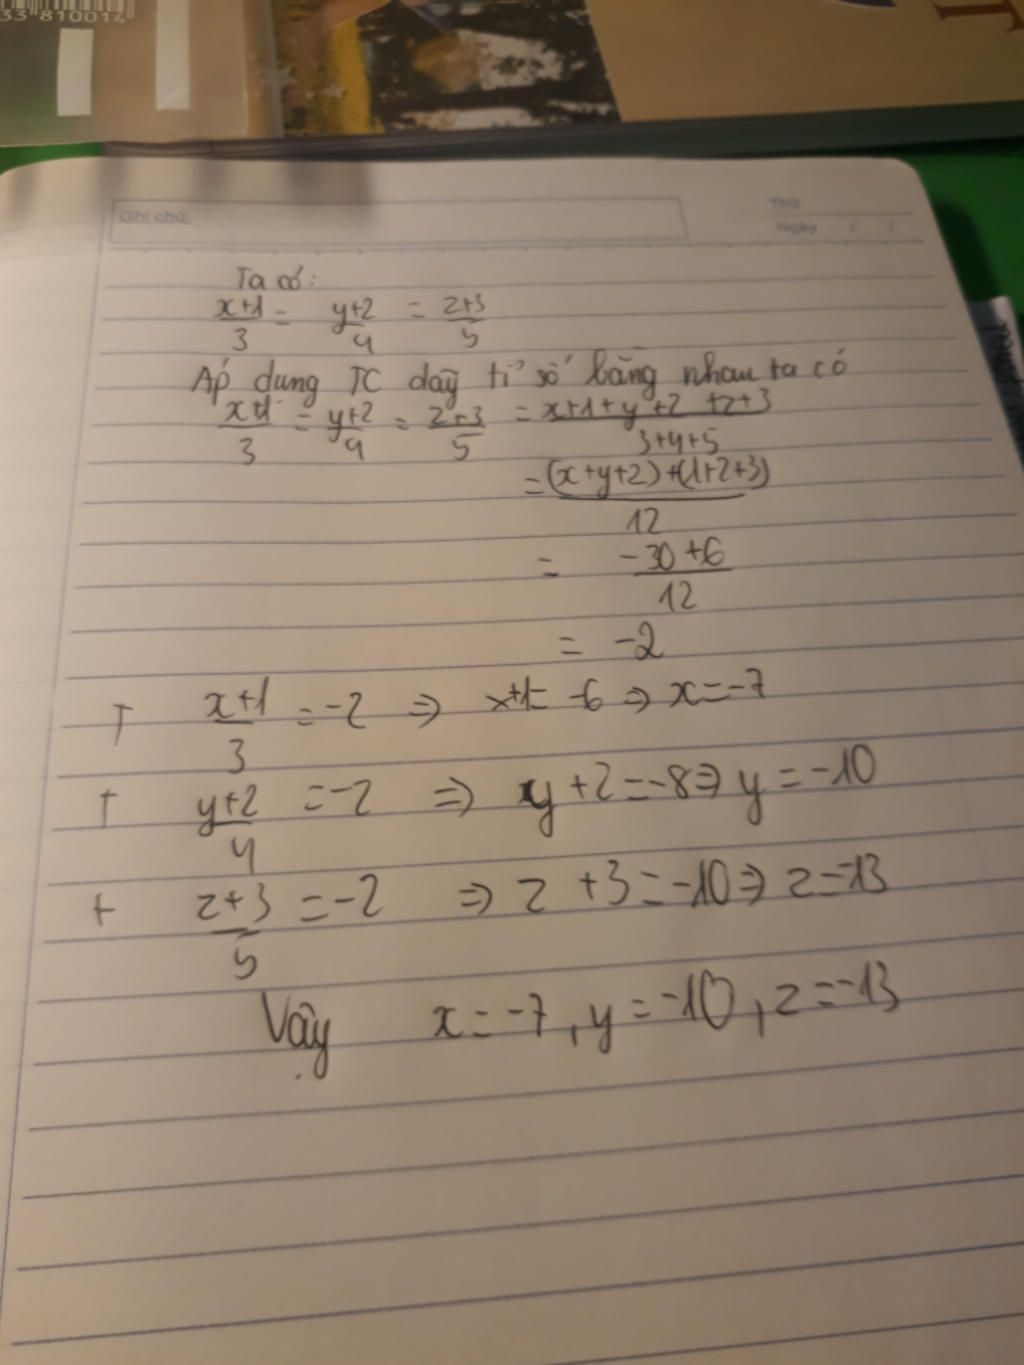 33 810014
Ghi chú:
Thứ
Ngày / /
Ta có:
x+1/3 = y+2/4 = z+3/5
Áp dung TC dãy tỉ số bằng nhau ta có
x+1/3 = y+2/4 = z+3/5 = x+1+y+2+z+3/3+4+5
= (x+y+z)+(1+2+3)/12
= -30+6/12
= -2
+ x+1/3 = -2 ⇒ x+1= -6 ⇒ x=-7
+ y+2/4 = -2 ⇒ y+2=-8 ⇒ y=-10
+ z+3/5 = -2 ⇒ z+3=-10 ⇒ z=-13
Vậy x=-7, y=-10, z=-13